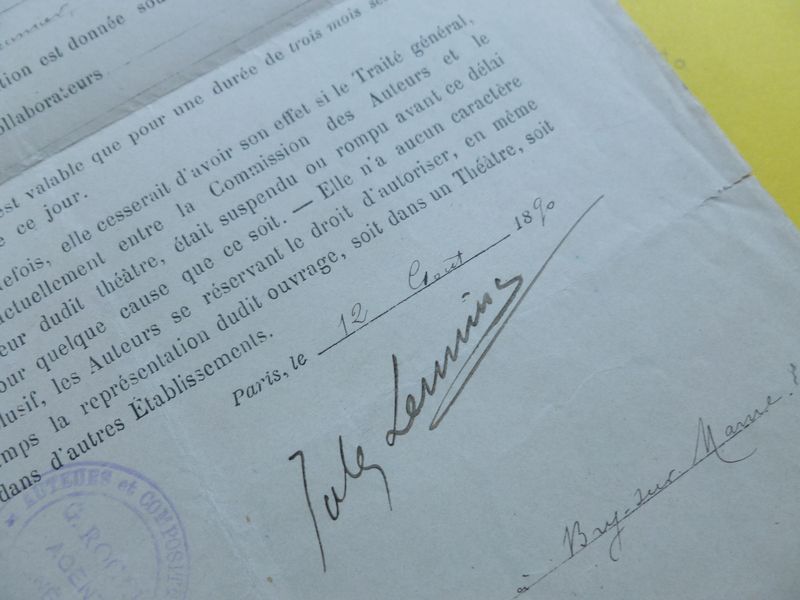 tion est donnée sou
ollaborateurs
est valable que pour une durée de trois mois se
e ce jour.
efois, elle cesserait d'avoir son effet si le Traité général,
actuellement entre la Commission des Auteurs et le
eur dudit théâtre, était suspendu ou rompu avant ce délai
our quelque cause que ce soit. — Elle n'a aucun caractère
lusif, les Auteurs se réservant le droit d'autoriser, en même
mps la représentation dudit ouvrage, soit dans un Théâtre, soit
dans d'autres Établissements.
Paris, le 12 Août 1890
Jules Lermina
à Bry-sur Marne
* AUTEURS et COMPOSIT
G. ROG
AGEN